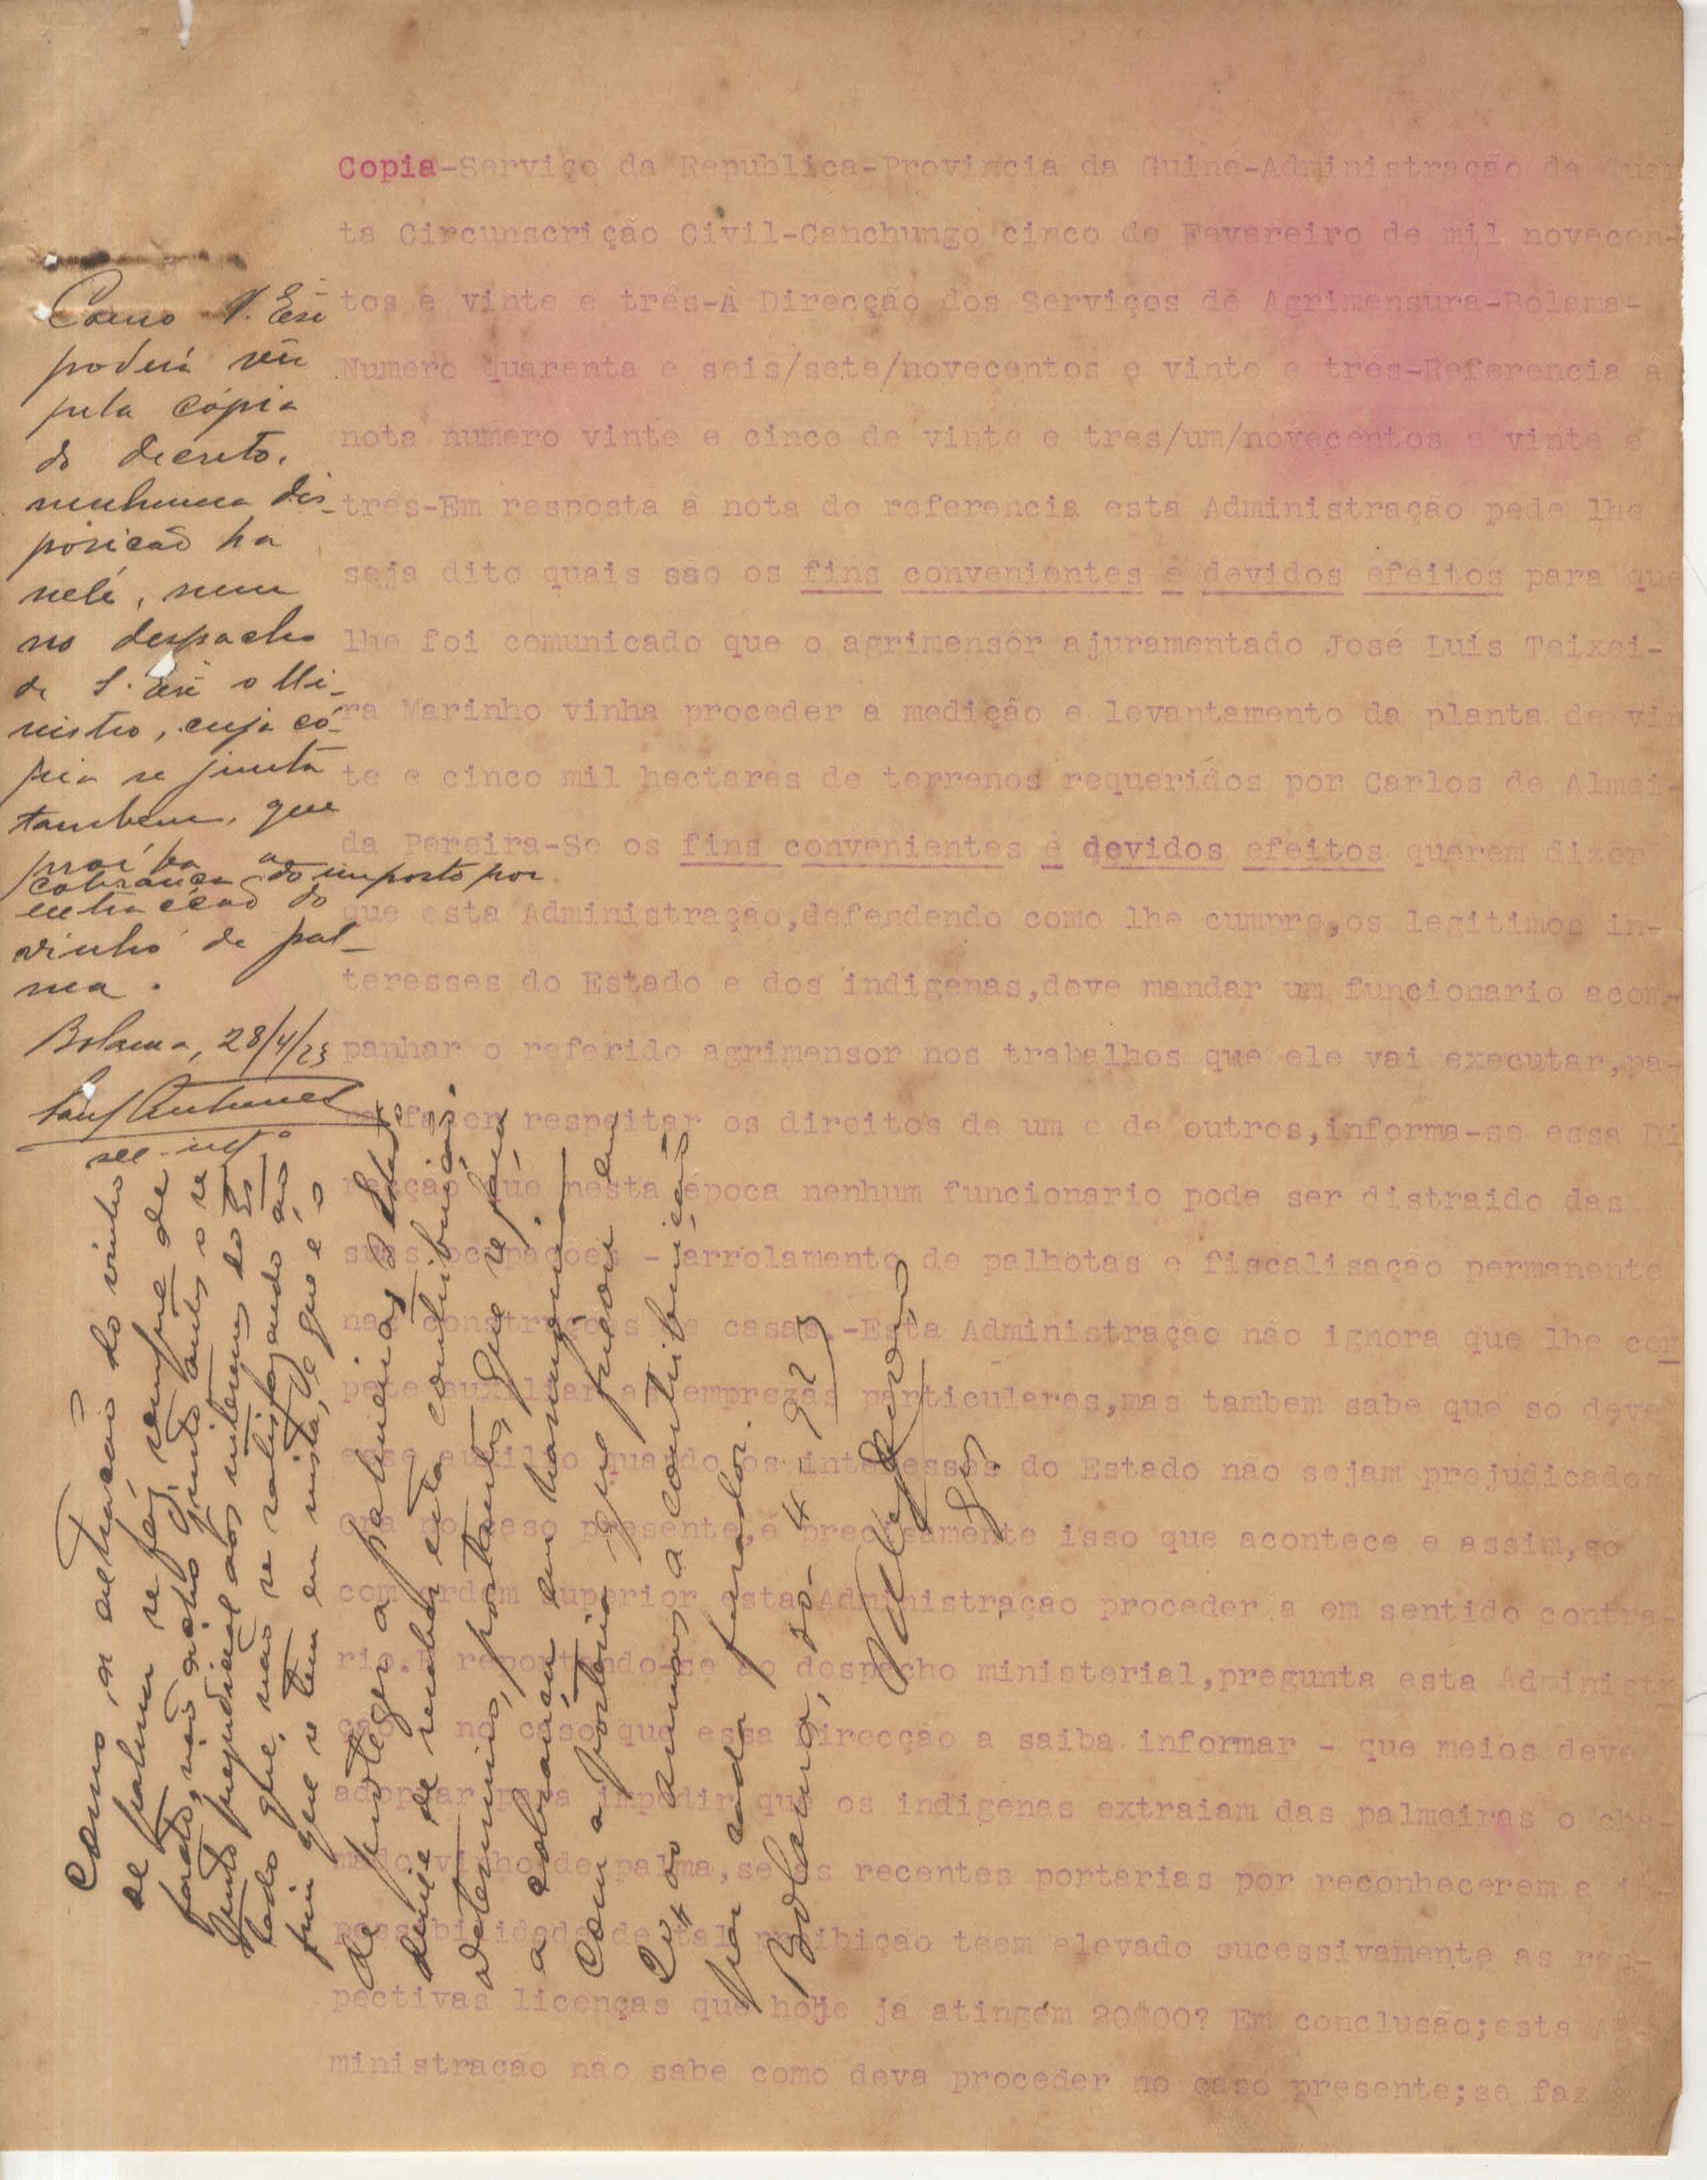 Copia-Serviço da Republica-Provincia da Guiné-Administração da Quar
ta Circunscrição Civil-Canchungo cinco de Fevereiro de mil novecen-
tos e vinte e três-Á Direcção dos Serviços de Agrimensura-Bolama-
Numero quarenta e seis/sete/novecentos e vinte e três-Referencia á
nota numero vinte e cinco de vinte e tres/um/novecentos e vinte e
três-Em resposta á nota de referencia esta Administração pede lhe
seja dito quais são os fins convenientes e devidos efeitos para que
lhe foi comunicado que o agrimensor ajuramentado José Luís Teixei-
ra Marinho vinha proceder a medição e levantamento da planta de vin
te e cinco mil hectares de terrenos requeridos por Carlos de Almei-
da Pereira-Se os fins convenientes e devidos efeitos querem dizer
que esta Administração,defendendo como lhe cumpre,os legitimos in-
teresses do Estado e dos indigenas,deve mandar um funcionario acom-
panhar o referido agrimensor nos trabalhos que ele vai executar,pa-
ra fazer respeitar os direitos de um e de outros,informa-se essa Di
recção que nesta época nenhum funcionario pode ser distraido das
suas ocupações - arrolamento de palhotas e fiscalisação permanente
nas construções de casas.-Esta Administração não ignora que lhe com
pete auxiliar as emprezas particulares,mas tambem sabe que só deve
esse auxilio quando os interesses do Estado não sejam prejudicados
Ora no caso presente,é precisamente isso que acontece e assim,só
com ordem superior esta Administração procederá em sentido contra-
rio.E reportando-se ao despacho ministerial,pregunta esta Administr
ção - no caso que essa Direcção a saiba informar - que meios deve
adoptar para impedir que os indigenas extraiam das palmeiras o cha-
mado vinho de palma,se as recentes portarias por reconhecerem a im-
possibilidade de tal proibição teem elevado sucessivamente as res-
pectivas licenças que hoje já atingem 20$00? Em conclusão;esta Ad-
ministração não sabe como deva proceder no caso presente;se faz
Como V. Exª
poderá ver
pela cópia
do decreto,
nenhuma dis-
posição ha
nele, nem
no despacho
de S. Exª o Mi-
nistro, cuja có-
pia se junta
tambem, que
proíba a
cobrança do imposto por
extracção do
vinho de pal-
ma.
Bolama, 28/4/23
Antunes
Como, a extracção do vinho
de palma se fez sempre de
facto, não acho
muito prejudicial aos interesses do Es
tado que, não se satisfazendo ao
fim que se tem em vista, que é o
de proteger a palmeira, o Estado
deixe de receber esta contribuição
determino, portanto, que se faça
a cobrança em harmonia
com a portaria que fixou em
a contribuição
por cada furador.
Bolama, 30-4-923